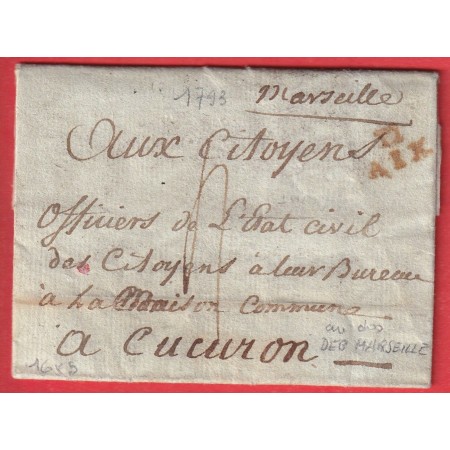 1793
Marseille
AIX
aux Citoyens
officiers de L'Etat civil
des Citoyens à leur Bureau
à La Maison Commune
a Cucuron
au dos
DEB MARSEILLE